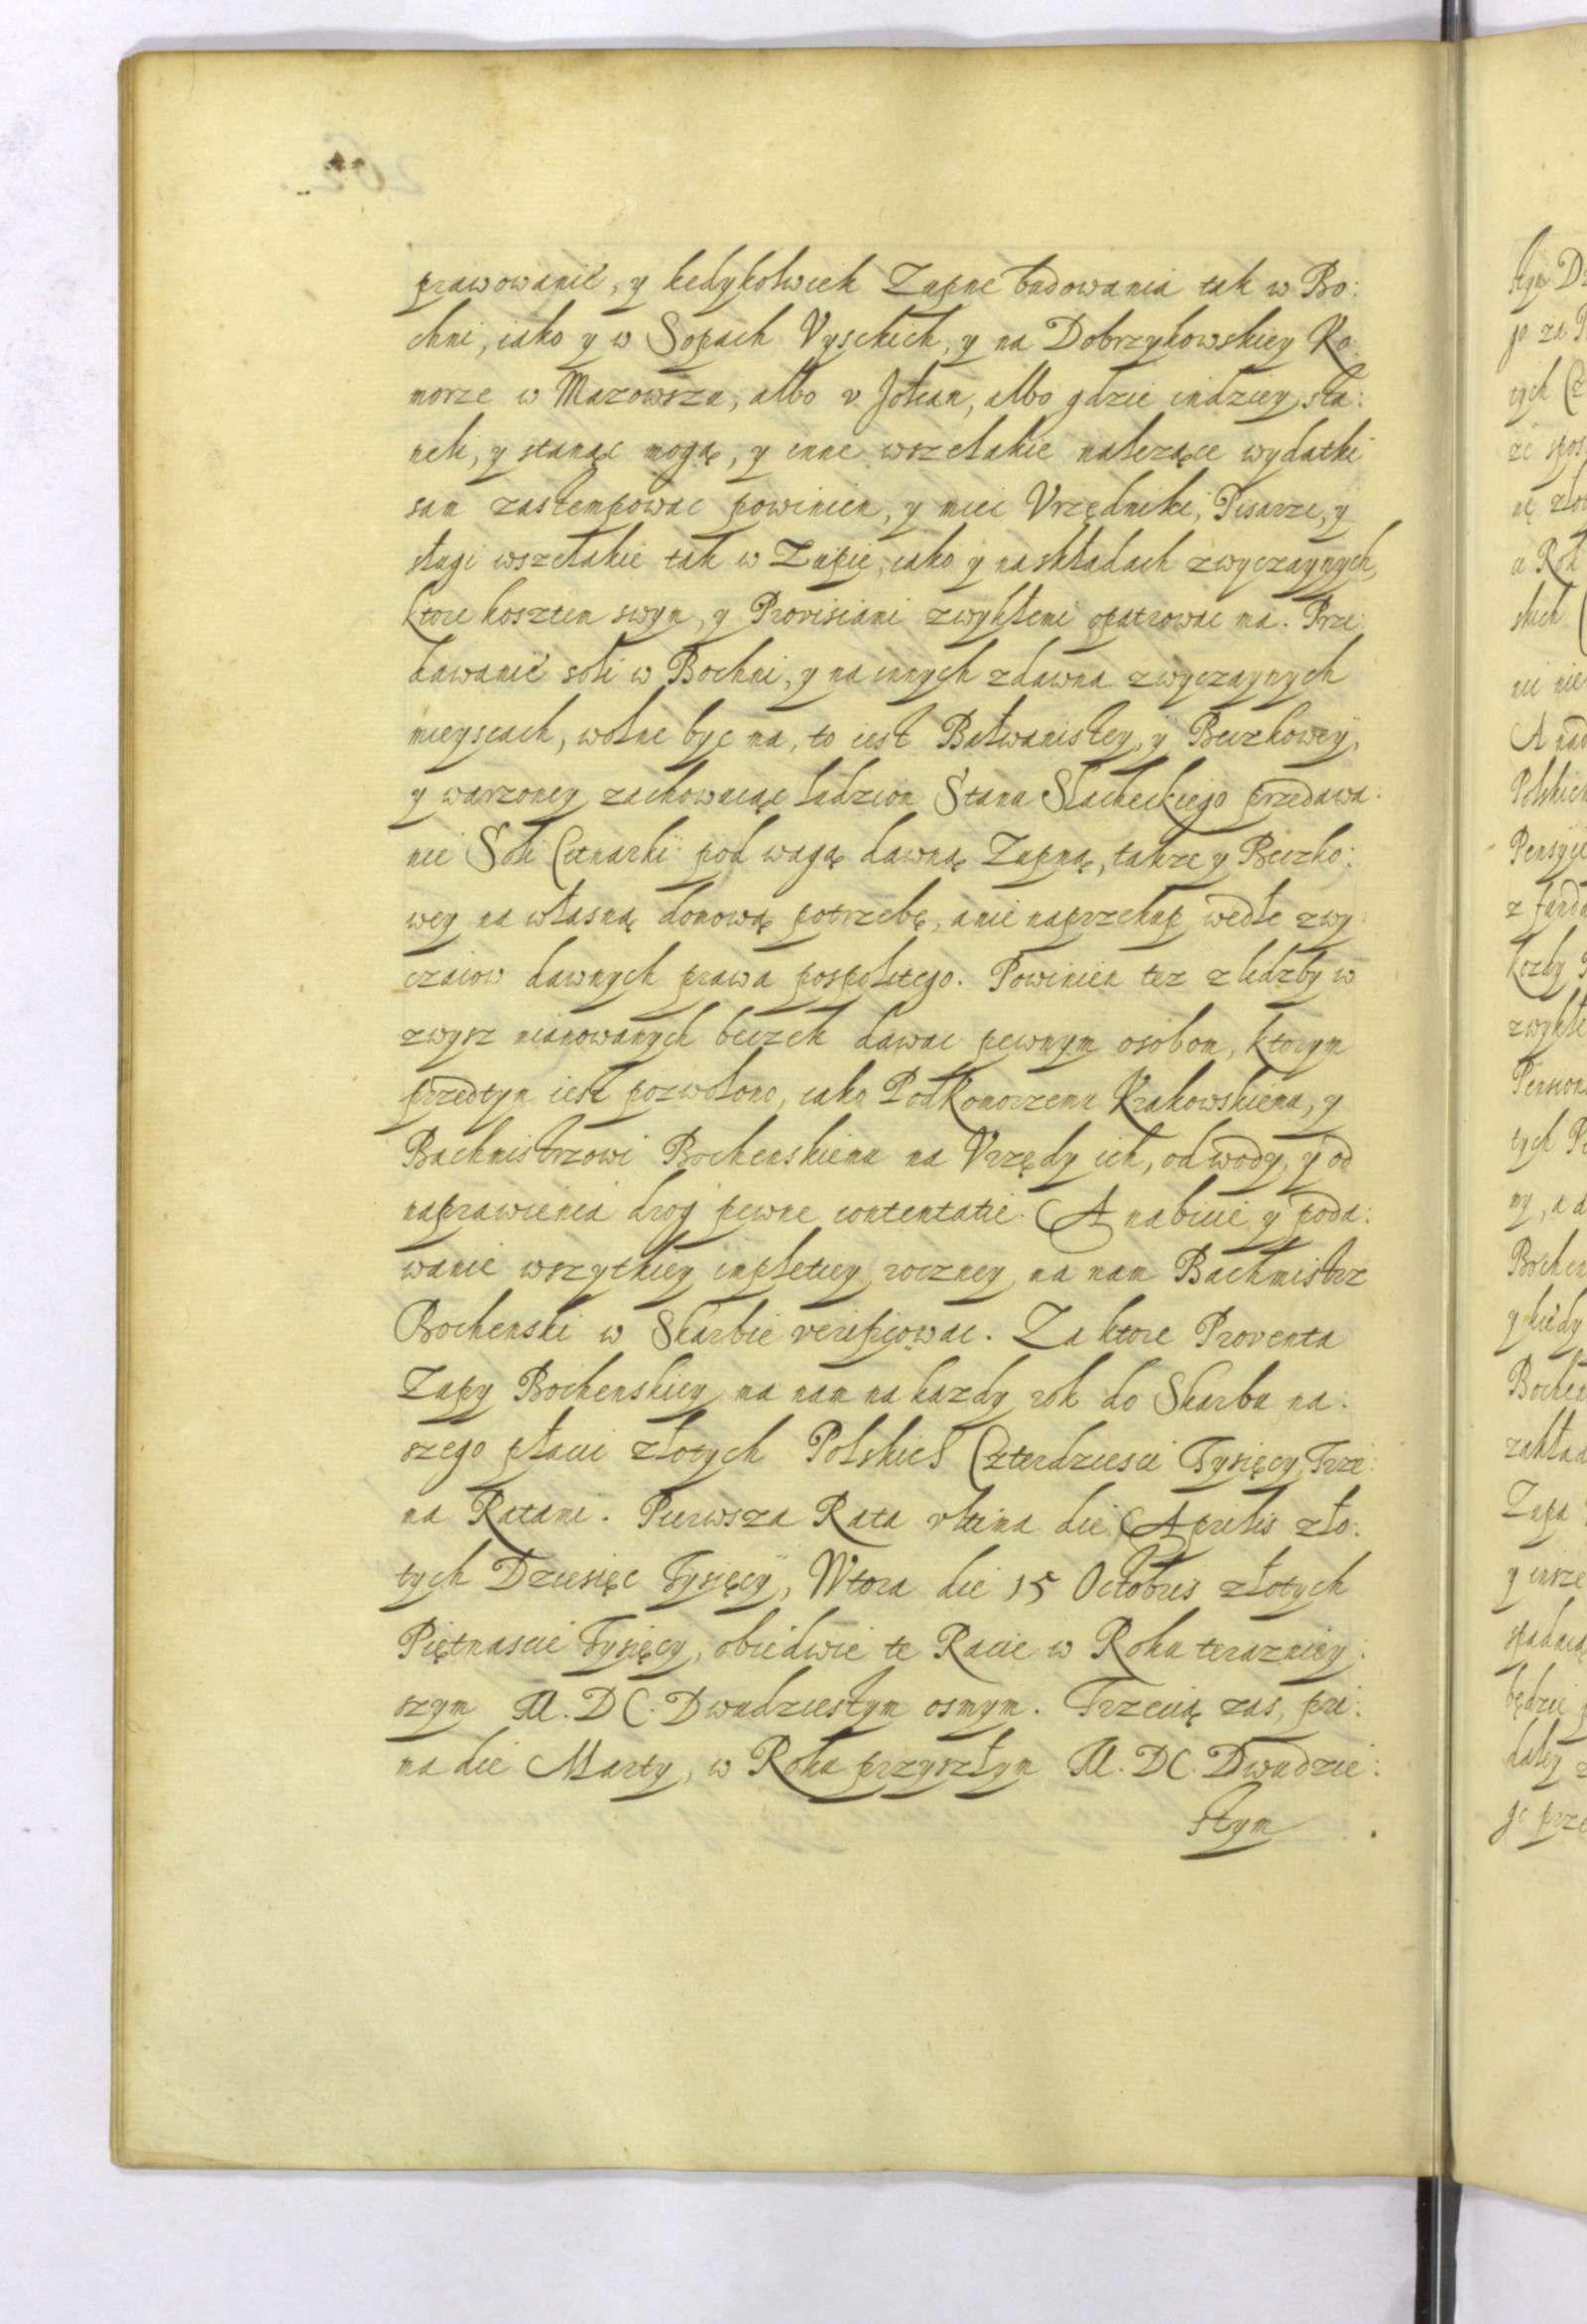 prawowanie, y kedykolwiek Zupne budowania tak w Bo:
chni, iako y w Sopach Vyschich, y na Dobrzykowskiey Ko:
morze w Mazowszu, albo v Jolean, albo gdzie indziey, sta:
neli, y stanąc mogą, y inne wszelakie należące wydatki
sam zastempowac powinien, y miec Vrzędniki, Pisarze, y
sługi wszelakie tak w Zupie, iako y na składach zwyczaynych,
ktore kosztem swym, y Provisiami zwykłemi opatrowac ma. Prze:
dawanie soli w Bochni, y na innych zdawna zwyczaynych
mieyscach, wolne byc ma, to iest Bałwanistey, y Beczkowey,
y warzoney zachowuiąc ludziom Stanu Slacheckiego przedawa:
nie Soli Cetnarki pod wagą dawną Zupną, takze y Beczko:
wey na własną domową potrzebę, a nie naprzekup wedle zwy:
czaiow dawnych prawa pospolitego. Powinien tez z lidzby w
zwysz mianowanych beczek dawac pewnym osobom, ktorym
przedtym iest pozwolono, iako PodKomorzemu Krakowskiemu, y
Bachmistrzowi Bochenskiemu na Vrzędy ich, od wody, y od
naprawienia drog pewne contentatie. A nabicie y poda:
wanie wszytkiey impletiey roczney ma nam Bachmistrz
Bochenski w Skarbie verificowac. Za ktore Proventa
Zupy Bochenskiey ma nam na kazdy rok do Skarbu na:
szego płacic złotych Polskich Czterdziesci Tysięcy Trze:
ma Ratami. Pierwsza Rata vltima die Aprilis zło:
tych Dziesięc Tysięcy, Wtora die 15 Octobris złotych
Piętnascie Tysięcy, obiedwie te Racie w Roku terazniey:
szym M.DC. Dwudziestym osmym. Trzecią zas, pri:
ma die Marty, w Roku przyszłym M.DC. Dwudzie:
stym